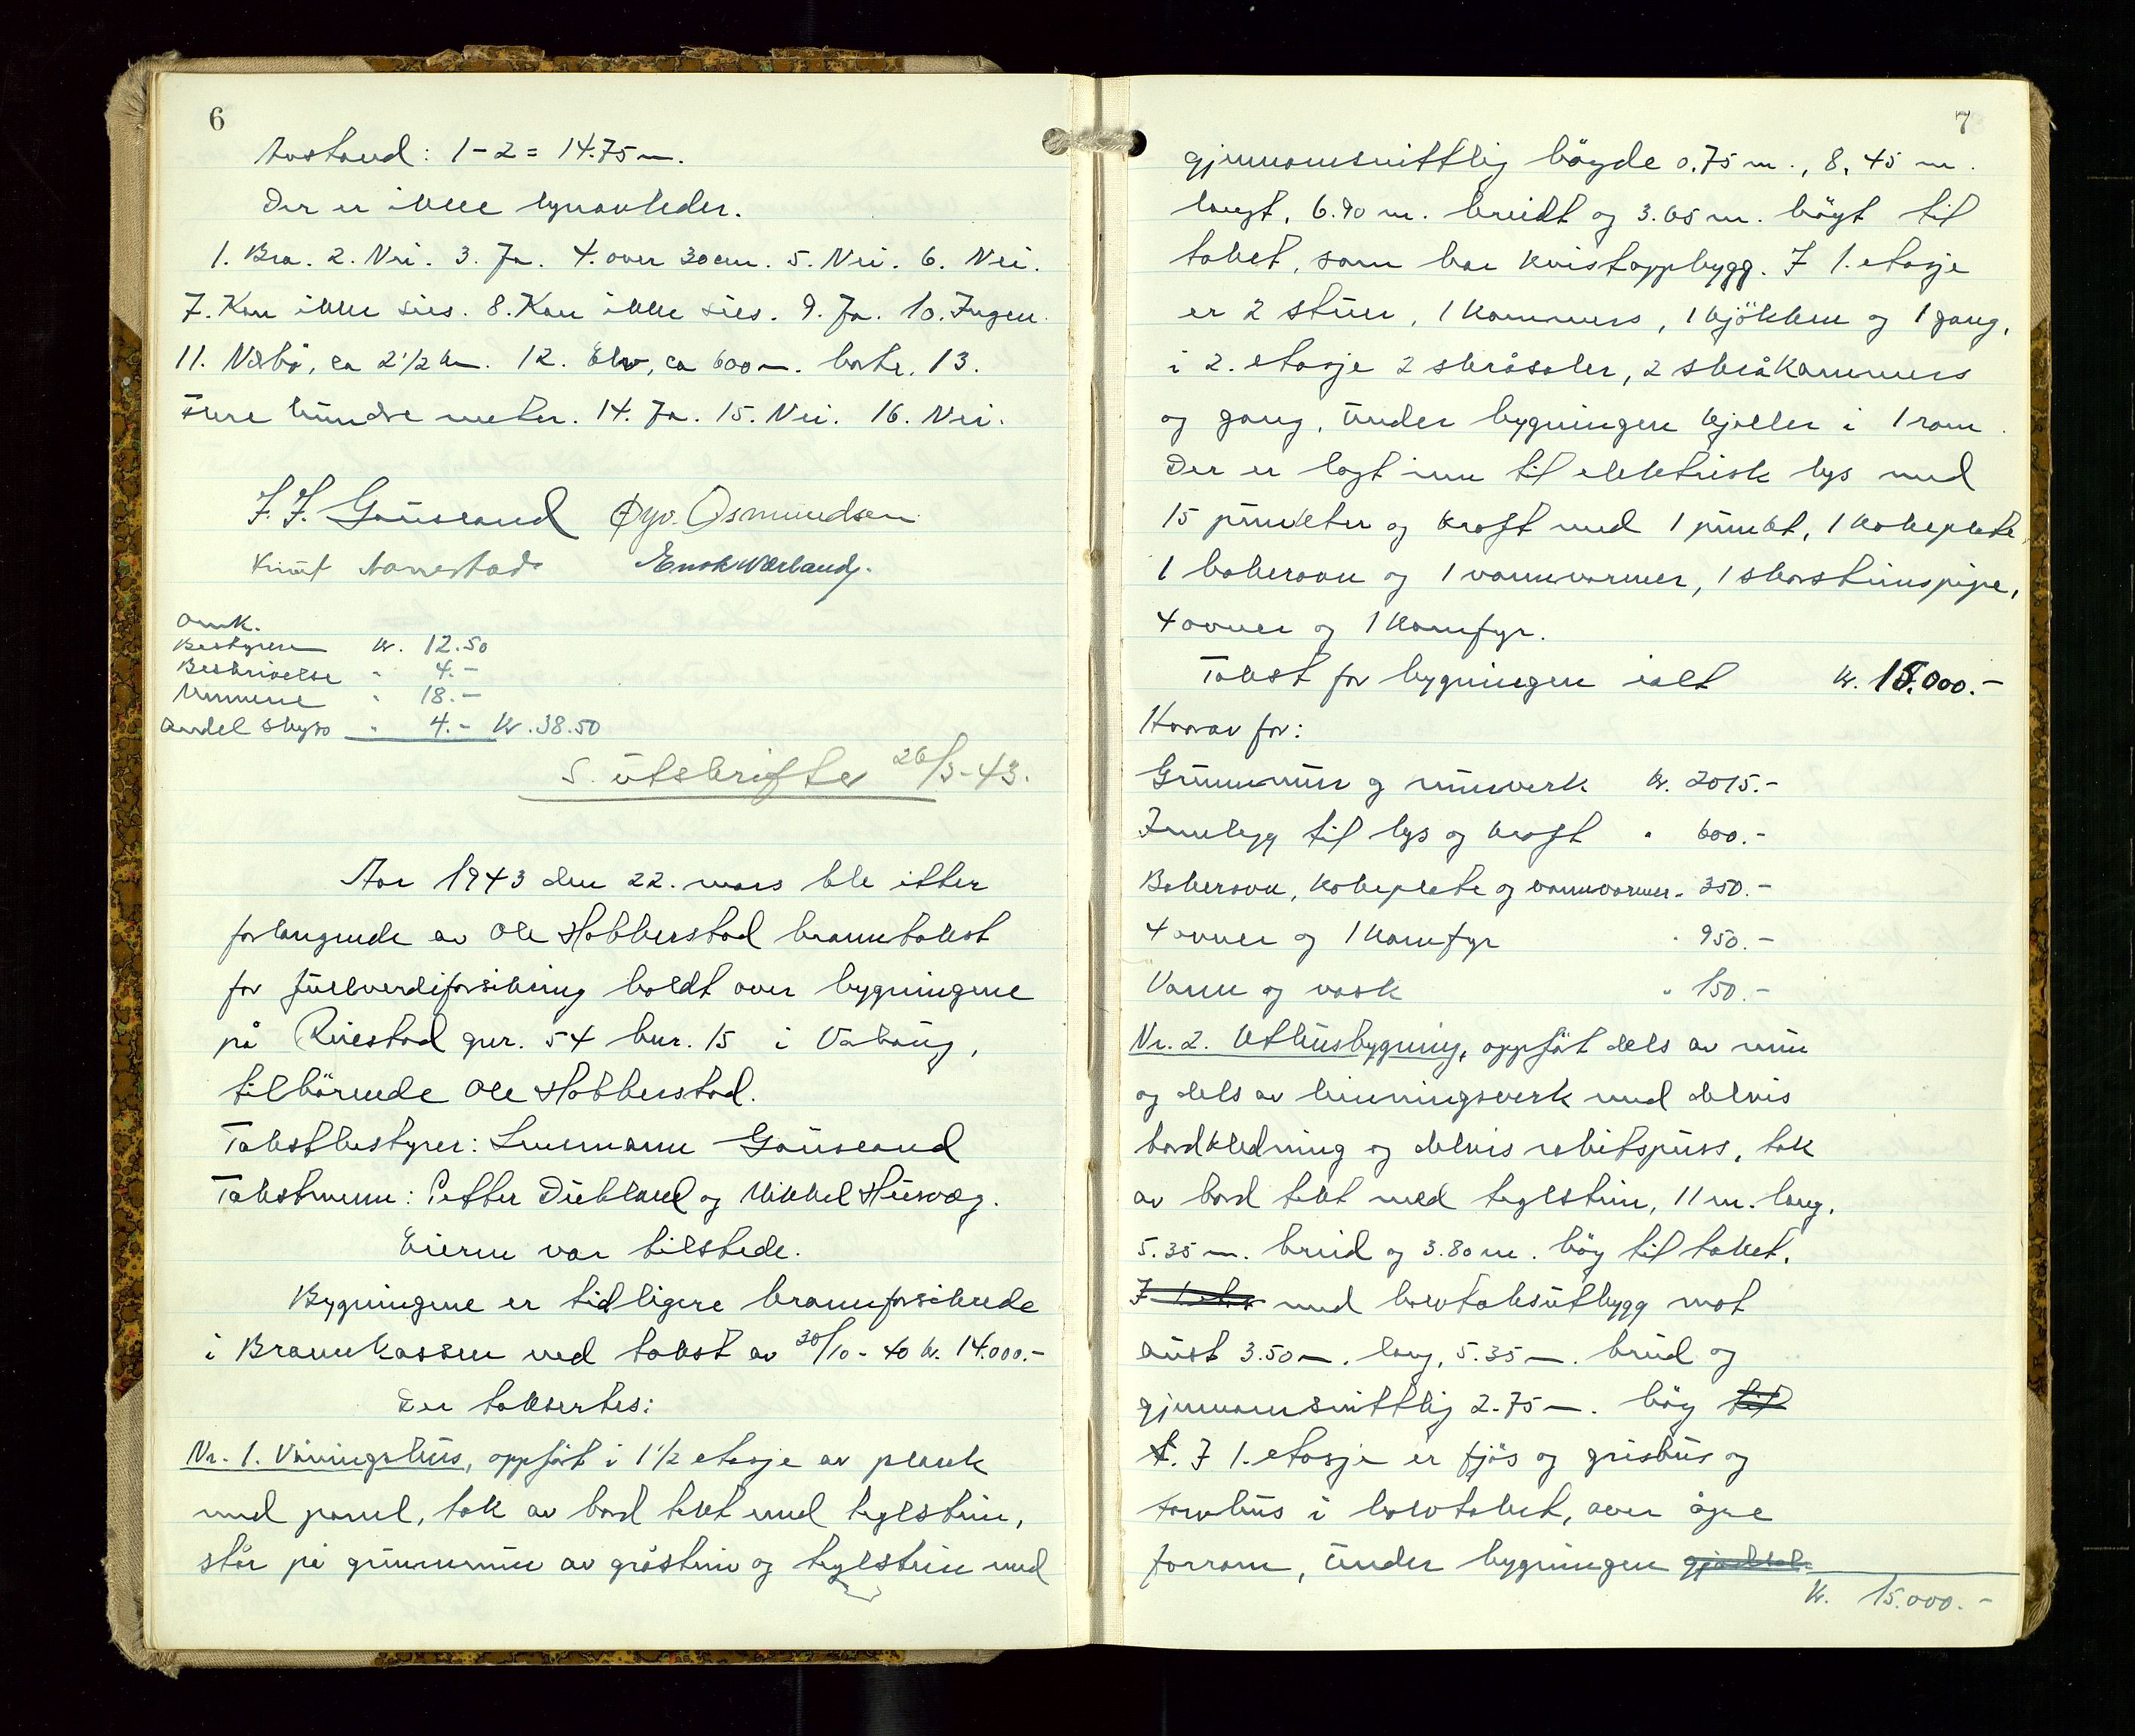 6
Avstand: 1-2 = 14.75 m.
Der er ikke lynavleder.
1. Bra. 2. Nei. 3. Ja. 4. over 30 cm. 5. Nei. 6. Nei.
7. Kan ikke sies. 8. Kan ikke sies. 9. Ja. 10. Ingen.
11. Nærbø, ca 2 1/2 km. 12. Elv, ca 600 m. borte. 13.
Flere hundre meter. 14. Ja. 15. Nei. 16. Nei.
J. J. Gausland Øyv. Osmundsen
Knut Enok Værland.
Omk.
Bestyreren kr. 12.50
Beskrivelse " 4.-
Mennene " 18.-
Andel skyss " 4.- kr. 38.50
S. utskrifter 26/3-43.
Aar 1943 den 22. mars ble etter
forlangende av Ole Hobberstad branntakst
for fullverdiforsikring holdt over bygningene
på Ruestad gnr. 54 bnr. 15 i Varhaug,
tilhörende Ole Hobberstad.
Takstbestyrer: Lensmann Gausland
Takstmenn: Petter Dubland og Mikkel Husvæg.
Eieren var tilstede.
Bygningene er tidligere brannforsikrede
i Brannkassen ved takst av 30/10-40 kr. 14.000.-
Der taksertes:
Nr. 1. Våningshus, oppfört i 1 1/2 etasje av plank
med panel, tak av bord tekt med teglstein,
står på grunnmur av gråstein og teglstein med
7
gjennomsnittlig höyde 0.75 m., 8.45 m.
langt, 6.90 m. breidt og 3.65 m. höyt til
taket, som har kvistoppbygg. I 1. etasje
er 2 stuer, 1 kammers, 1 kjökken og 1 gang,
i 2. etasje 2 skråsaler, 2 skråkammers
og gang, under bygningen kjeller i 1 rom.
Der er lagt inn til elektrisk lys med
15 punkter og kraft med 1 punkt, 1 kokeplate,
1 bakerovn og 1 vannvarmer, 1 skorsteinspipe,
4 ovner og 1 komfyr.
Takst for bygningen ialt kr. 15.000.-
Hvorav for:
Grunnmur og murverk kr. 2015.-
Innlegg til lys og kraft " 600.-
Bakerovn, kokeplate og vannvarmer " 350.-
4 ovner og 1 komfyr " 950.-
Vann og vask " 150.-
Nr. 2. Uthusbygning, oppfört dels av mur
og dels av binningsverk med delvis
bordkledning og delvis rabitspuss, tak
av bord tekt med teglstein, 11 m. lang,
5.35 m. breid og 3.80 m. höy til taket,
med halvtaksutbygg mot
aust 3.50 m. lang, 5.35 m. breid og
gjennomsnittlig 2.75 m. höy til
t. I 1. etasje er fjös og grishus og
torvhus i halvtaket, over ågne
forrom, under bygningen gjödsel-
kr. 15.000.-